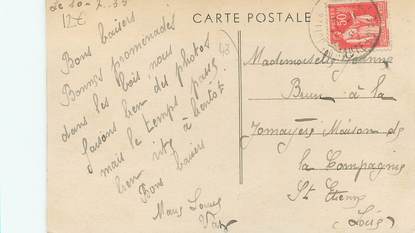 Le 10-2-35
12€
CARTE POSTALE
43
50
Bons baisers
Bonnes promenades
dans les bois nous
faisons bien des photos
mais le temps passe
bien vite à bientôt.
Bons baisers
Mademoiselle Jeanne
Brun à la
Maison de
la Compagnie
St Etienne
(Loire)